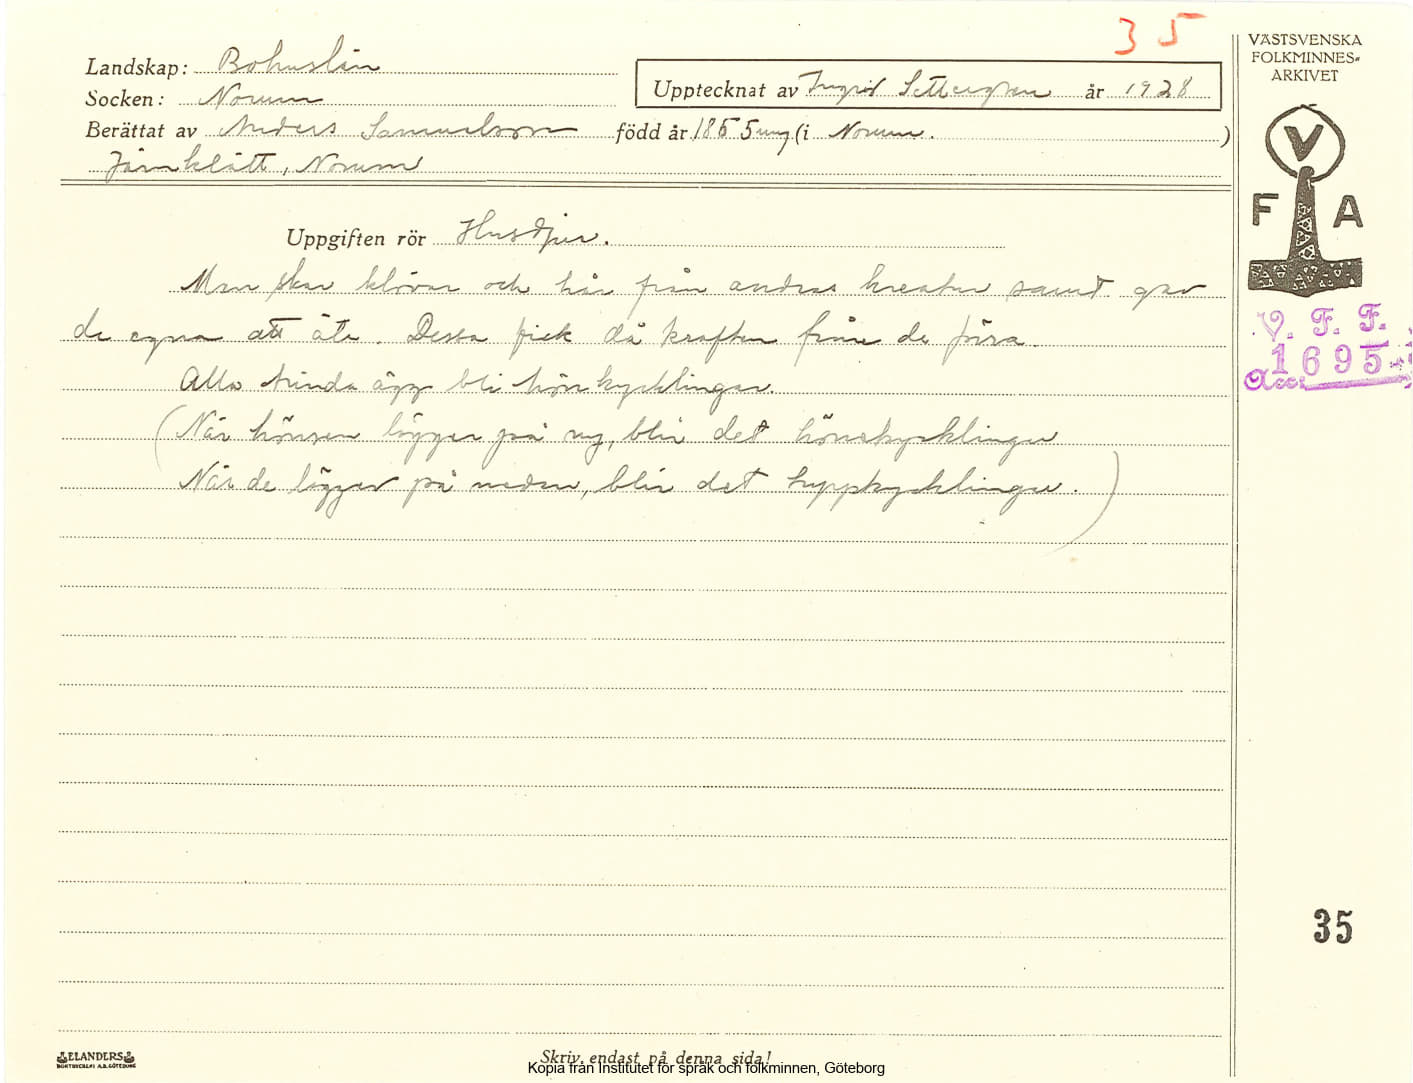 35
Landskap: Bohuslän
Socken: Norum
Upptecknat av Ingrid Settergren år 1928
Berättat av Anders Samuelsson född år 1855 (i Norum.)
Järnklätt, Norum
VÄSTSVENSKA
FOLKMINNES-
ARKIVET
V
F A
V. F. F.
1695
Acc:
Uppgiften rör Husdjur.
Man skar klövar och hår från andras kreatur samt gav
de egna att äta. Dessa fick då kraften från de förra.
Alla trinda ägg bli hönskycklingar.
(När hönsen lägger på ny, blir det hönskycklingar
När de lägger på nedan, blir det tuppkycklingar.)
35
ELANDERS
BOKTRYCKERI A.B. GÖTEBORG
Skriv endast på denna sida!
Kopia från Institutet för språk och folkminnen, Göteborg